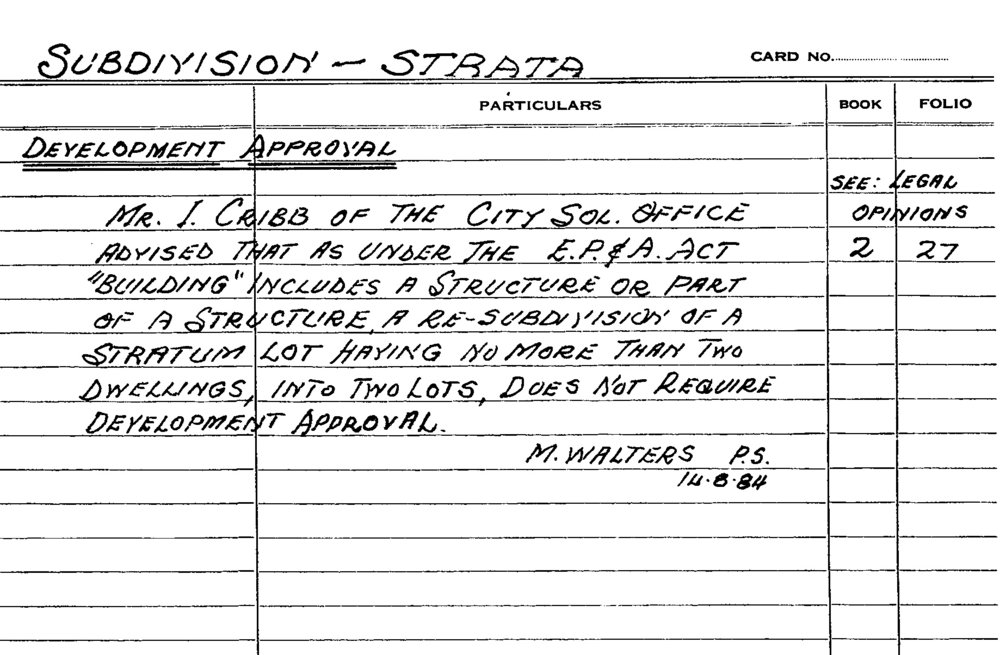 SUBDIVISION - STRATA CARD No.
PARTICULARS BOOK FOLIO
DEVELOPMENT APPROVAL
SEE: LEGAL
MR. I. CRIBB OF THE CITY SOL. OFFICE OPINIONS
ADVISED THAT AS UNDER THE E.P. & A. ACT 2 27
"BUILDING" INCLUDES A STRUCTURE OR PART
OF A STRUCTURE, A RE-SUBDIVISION OF A
STRATUM LOT HAVING NO MORE THAN TWO
DWELLINGS, INTO TWO LOTS, DOES NOT REQUIRE
DEVELOPMENT APPROVAL.
M. WALTERS P.S.
14.8.84